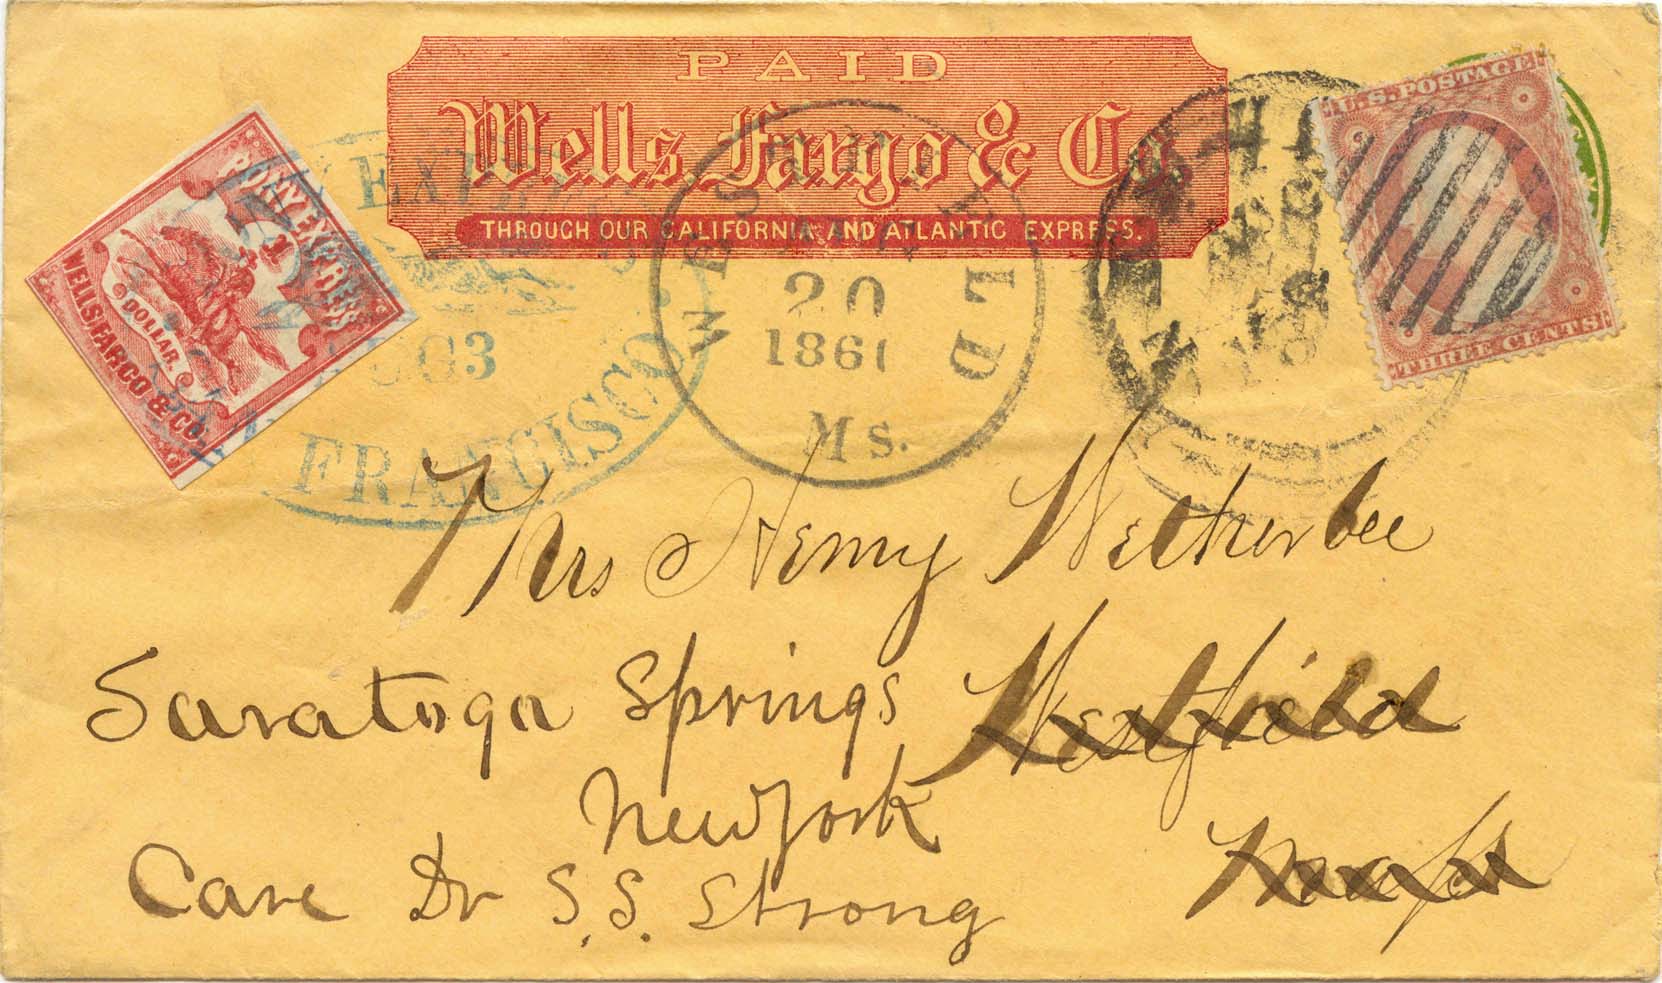 PAID
Wells Fargo & Co.
THROUGH OUR CALIFORNIA AND ATLANTIC EXPRESS.
PONY EXPRESS
1
DOLLAR.
WELLS, FARGO & CO.
EXPRESS
3
FRANCISCO
WESTFIELD
20
1861
Ms.
U.S. POSTAGE
THREE CENTS
Mrs Henry Wetherbee
Saratoga Springs Westfield
New York
Care Dr S.S. Strong